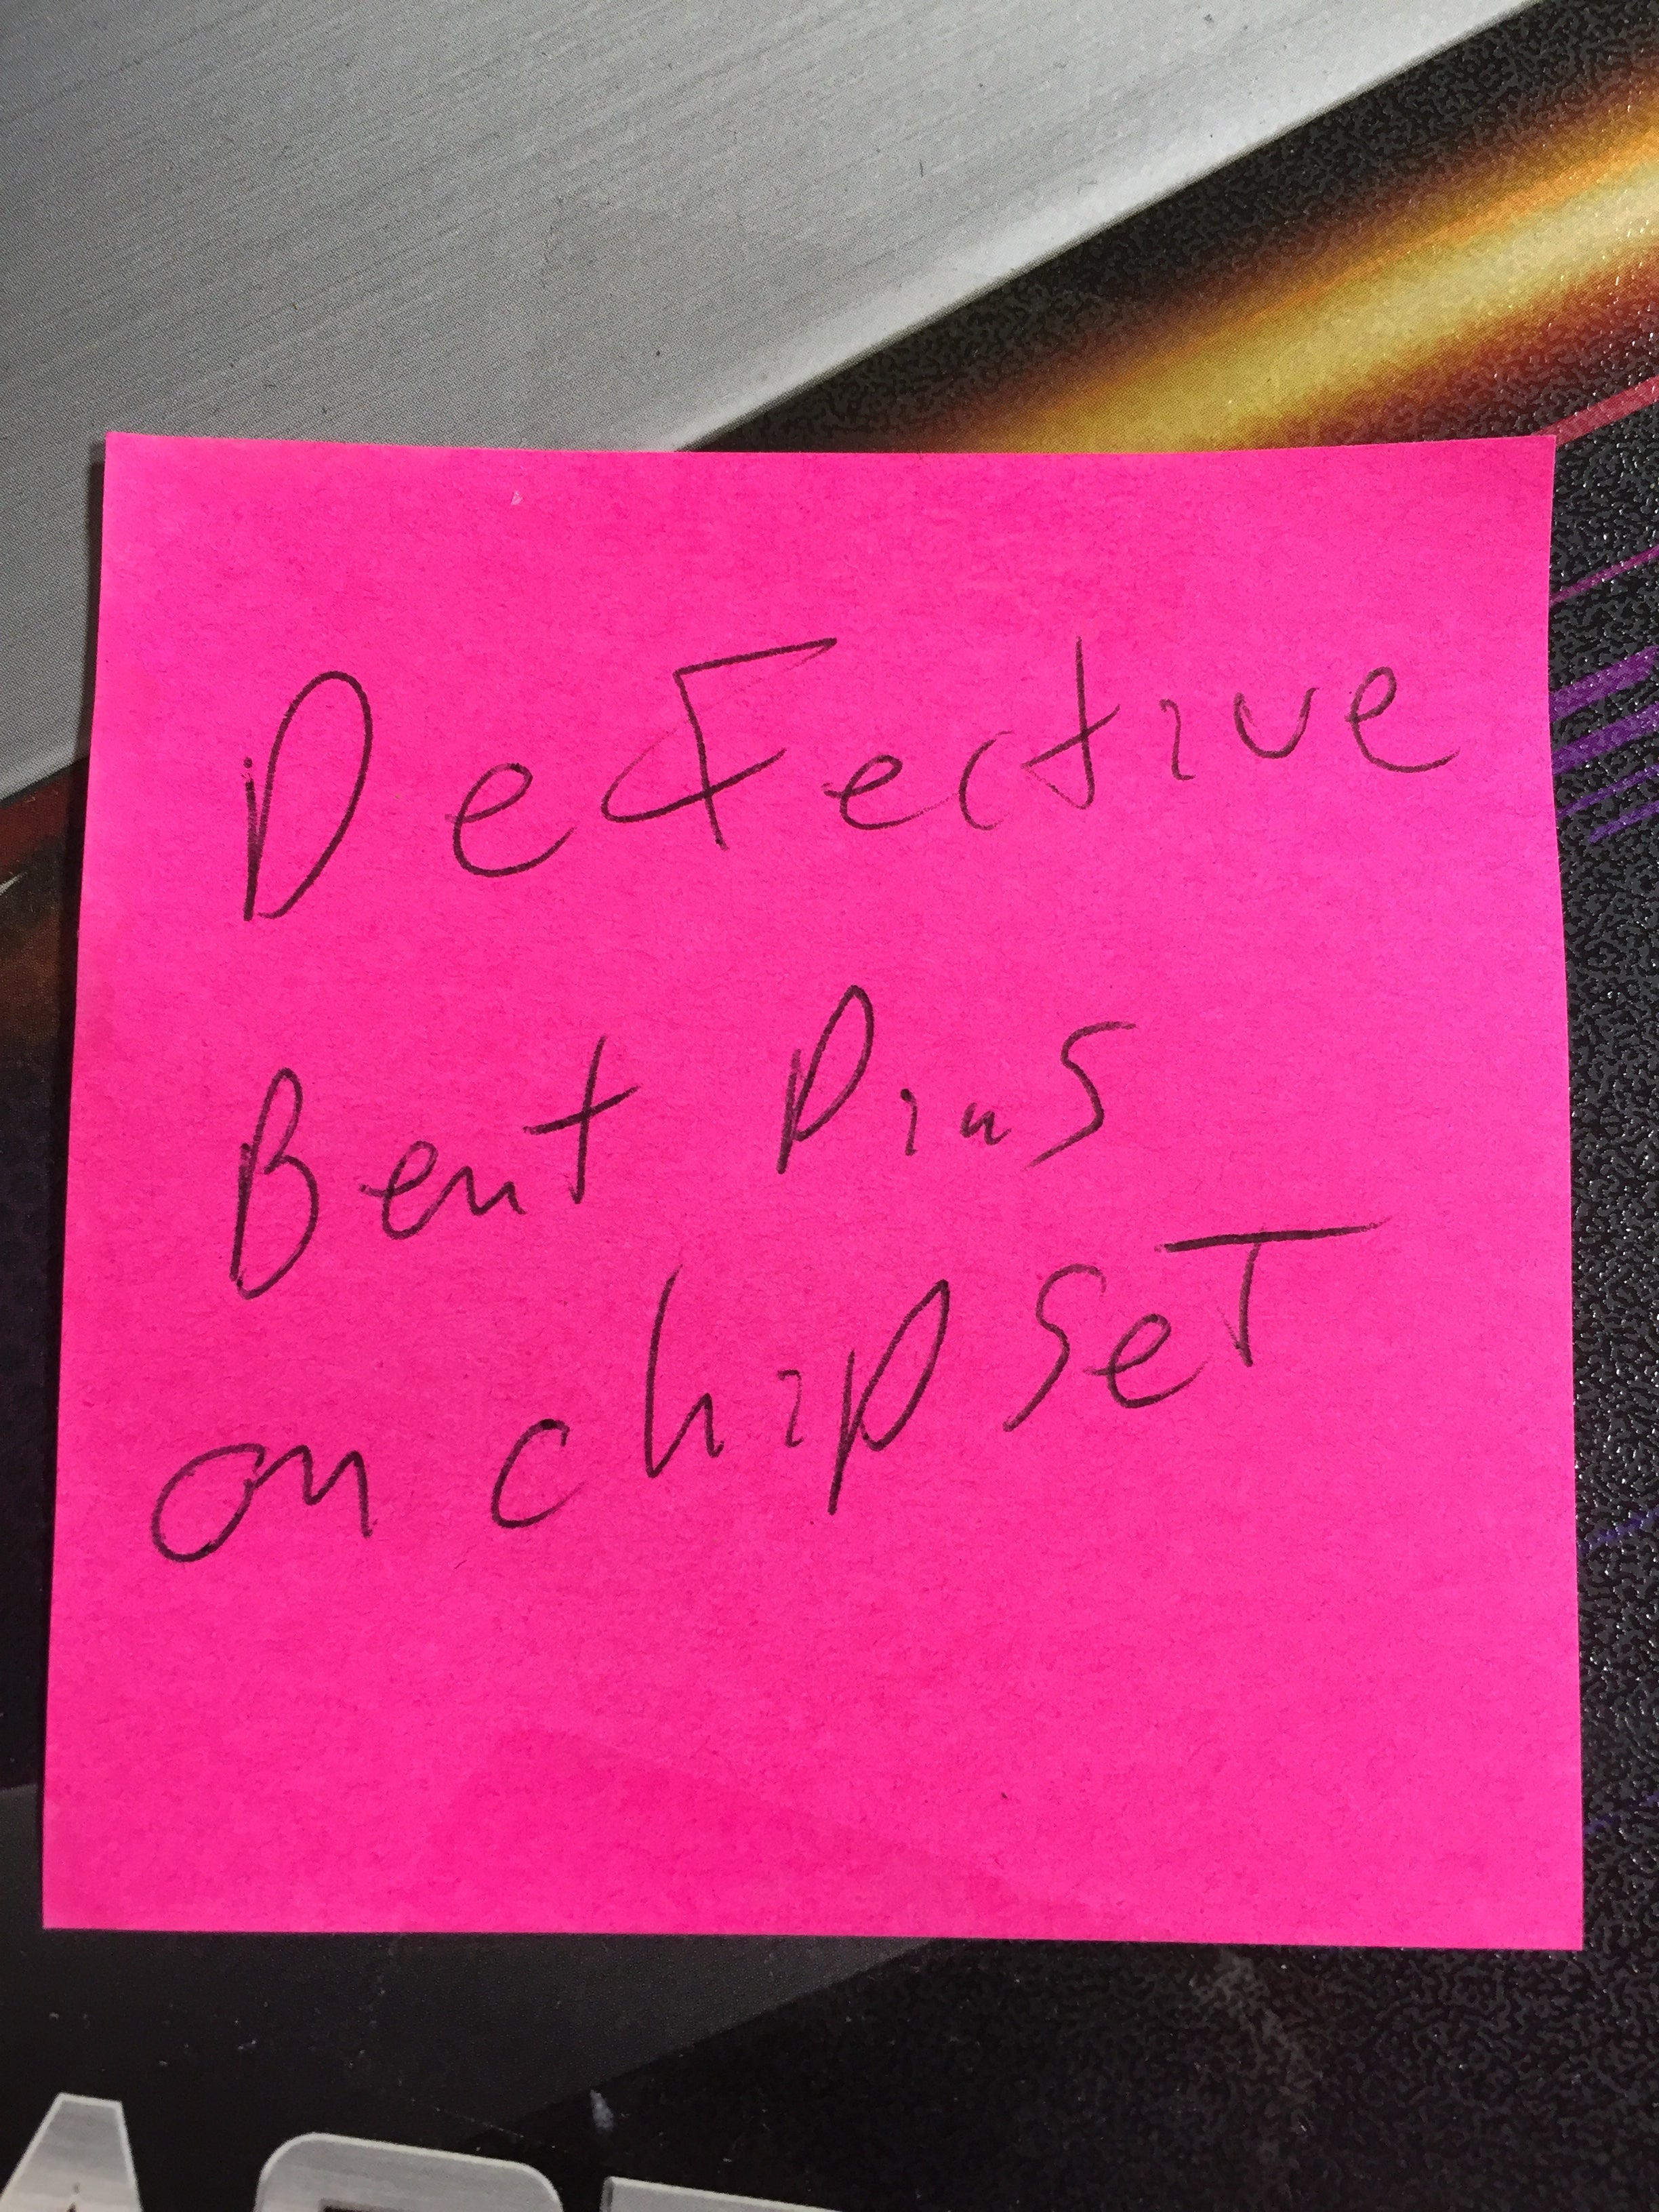 Defective
Bent Pins
on chipset